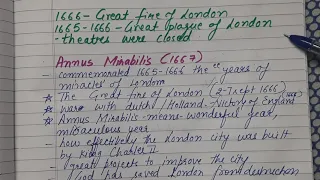 1666 - Great fire of London
1665-1666 - Great plague of London
- theatres were closed
Annus Mirabilis (1667)
- commemorated 1665-1666 the "years of
miracles" of London
* The Great fire of London (2-7 sept 1666)
* War with dutch / Holland - Victory of England
* Annus Mirabilis - means - wonderful year,
miraculous year
- how effectively the London city was built
by King Charles II
- great projects to improve the city
- God has saved London from destruction